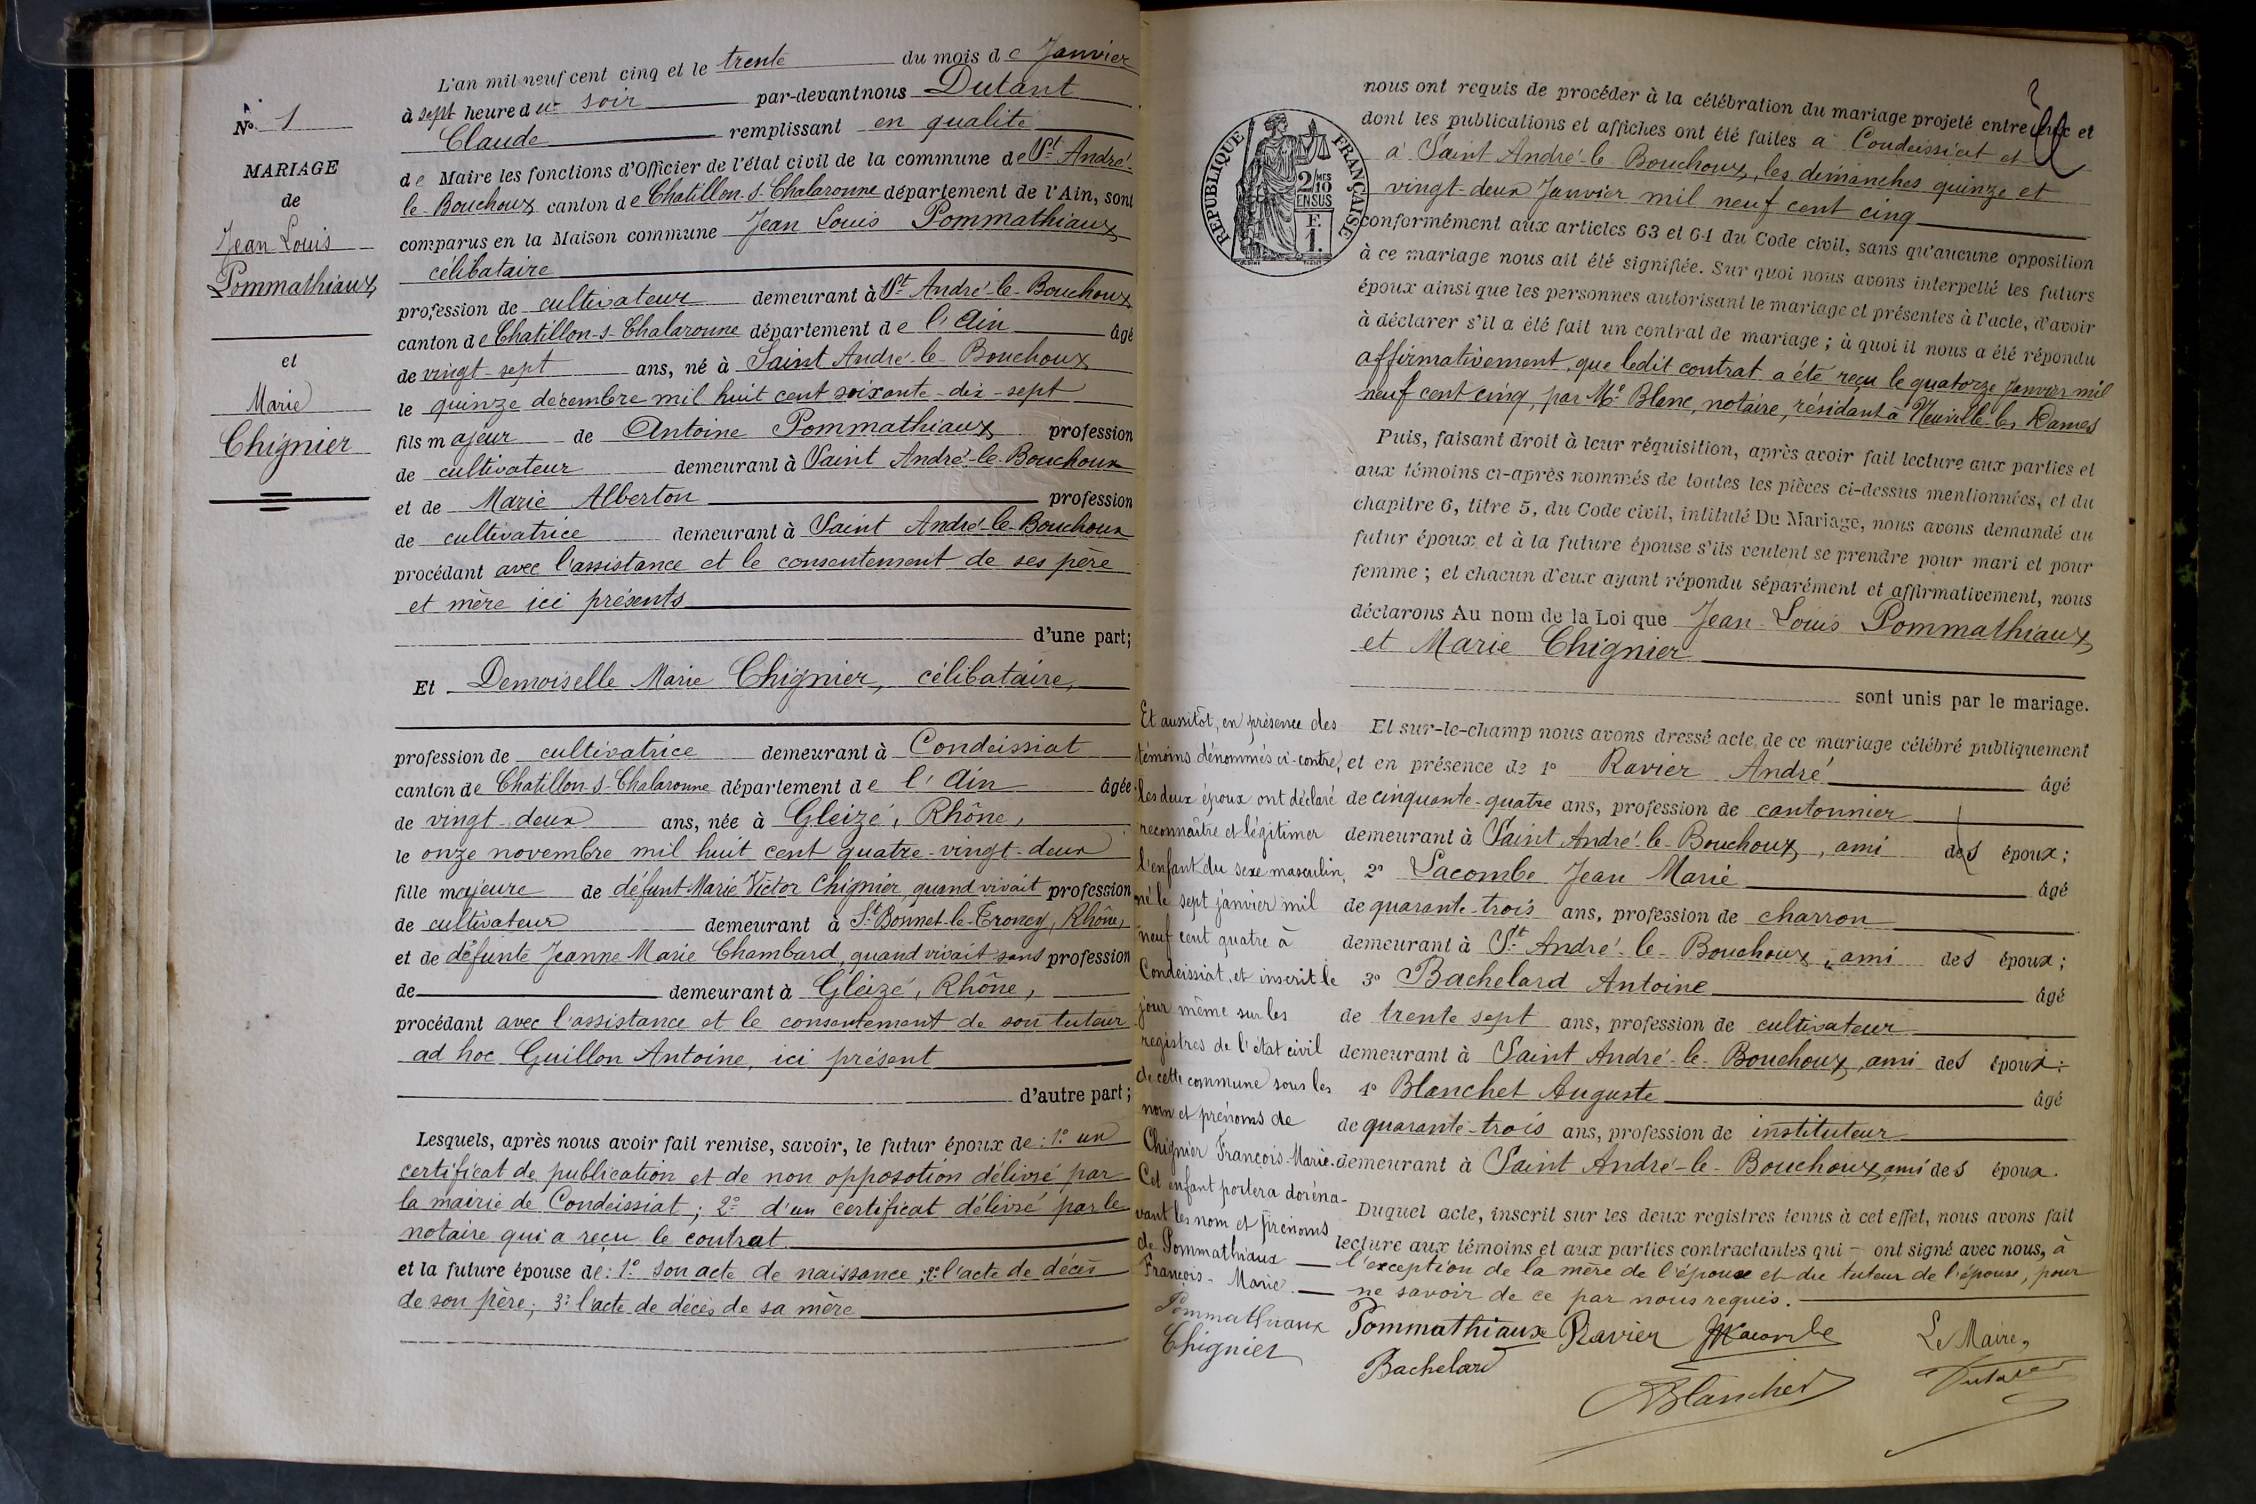 N° 1
MARIAGE
de
Jean Louis
Pommathiaux
et
Marie
Chignier
L'an mil neuf cent cinq et le trente du mois de Janvier
à sept heure du soir par-devant nous Dutant
Claude remplissant en qualité
de Maire les fonctions d'Officier de l'état civil de la commune de St André-
le-Bouchoux canton de Chatillon-s-Chalaronne département de l'Ain, sont
comparus en la Maison commune Jean Louis Pommathiaux
célibataire
profession de cultivateur demeurant à St André-le-Bouchoux
canton de Chatillon-s-Chalaronne département de l'Ain âgé
de vingt-sept ans, né à Saint André-le-Bouchoux
le quinze décembre mil huit cent soixante-dix-sept
fils majeur de Antoine Pommathiaux profession
de cultivateur demeurant à Saint André-le-Bouchoux
et de Marie Alberton profession
de cultivatrice demeurant à Saint André-le-Bouchoux
procédant avec l'assistance et le consentement de ses père
et mère ici présents
d'une part;
Et Demoiselle Marie Chignier, célibataire,
profession de cultivatrice demeurant à Condeissiat
canton de Chatillon-s-Chalaronne département de l'Ain âgée
de vingt-deux ans, née à Gleizé, Rhône,
le onze novembre mil huit cent quatre-vingt-deux
fille majeure de défunt Marie Victor Chignier, quand vivait profession
de cultivateur demeurant à St Bonnet-le-Troncy, Rhône,
et de défunte Jeanne Marie Chambard, quand vivait sans profession
de demeurant à Gleizé, Rhône,
procédant avec l'assistance et le consentement de son tuteur
ad hoc Guillon Antoine, ici présent
d'autre part;
Lesquels, après nous avoir fait remise, savoir, le futur époux de: 1° un
certificat de publication et de non opposotion délivré par
la mairie de Condeissiat; 2° d'un certificat délivré par le
notaire qui a reçu le contrat
et la future épouse de: 1° son acte de naissance; 2° l'acte de décès
de son père; 3° l'acte de décès de sa mère
RÉPUBLIQUE FRANÇAISE
2/10 MES
EN SUS
F.
1.
nous ont requis de procéder à la célébration du mariage projeté entre eux et
dont les publications et affiches ont été faites à Condeissiat et
à Saint André-le-Bouchoux, les dimanches quinze et
vingt-deux Janvier mil neuf cent cinq
conformément aux articles 63 et 64 du Code civil, sans qu'aucune opposition
à ce mariage nous ait été signifiée. Sur quoi nous avons interpellé les futurs
époux ainsi que les personnes autorisant le mariage et présentes à l'acte, d'avoir
à déclarer s'il a été fait un contrat de mariage; à quoi il nous a été répondu
affirmativement, que ledit contrat a été reçu le quatorze Janvier mil
neuf cent cinq, par Me Blanc, notaire, résidant à Neuville-les-Dames
Puis, faisant droit à leur réquisition, après avoir fait lecture aux parties et
aux témoins ci-après nommés de toutes les pièces ci-dessus mentionnées, et du
chapitre 6, titre 5, du Code civil, intitulé Du Mariage, nous avons demandé au
futur époux et à la future épouse s'ils veulent se prendre pour mari et pour
femme; et chacun d'eux ayant répondu séparément et affirmativement, nous
déclarons Au nom de la Loi que Jean-Louis Pommathiaux
et Marie Chignier
sont unis par le mariage.
Et sur-le-champ nous avons dressé acte de ce mariage célébré publiquement
et en présence de 1° Ravier André âgé
de cinquante-quatre ans, profession de cantonnier
demeurant à Saint André-le-Bouchoux, ami des époux;
2° Lacombe Jean Marie âgé
de quarante-trois ans, profession de charron
demeurant à St André-le-Bouchoux, ami des époux;
3° Bachelard Antoine âgé
de trente sept ans, profession de cultivateur
demeurant à Saint André-le-Bouchoux, ami des époux;
4° Blanchet Auguste âgé
de quarante-trois ans, profession de instituteur
demeurant à Saint André-le-Bouchoux, ami des époux.
Duquel acte, inscrit sur les deux registres tenus à cet effet, nous avons fait
lecture aux témoins et aux parties contractantes qui ont signé avec nous, à
l'exception de la mère de l'époux et du tuteur de l'épouse, pour
ne savoir de ce par nous requis.
Et aussitôt, en présence des
témoins dénommés ci-contre,
les deux époux ont déclaré
reconnaître et légitimer
l'enfant du sexe masculin,
né le sept janvier mil
neuf cent quatre à
Condeissiat, et inscrit le
jour même sur les
registres de l'état civil
de cette commune sous les
nom et prénoms de
Chignier François-Marie.
Cet enfant portera doréna-
vant les nom et prénoms
de Pommathiaux
François-Marie.
Pommathiaux Pommathiaux Ravier JM Lacombe Le Maire,
Chignier Bachelard Blanchet Dutant